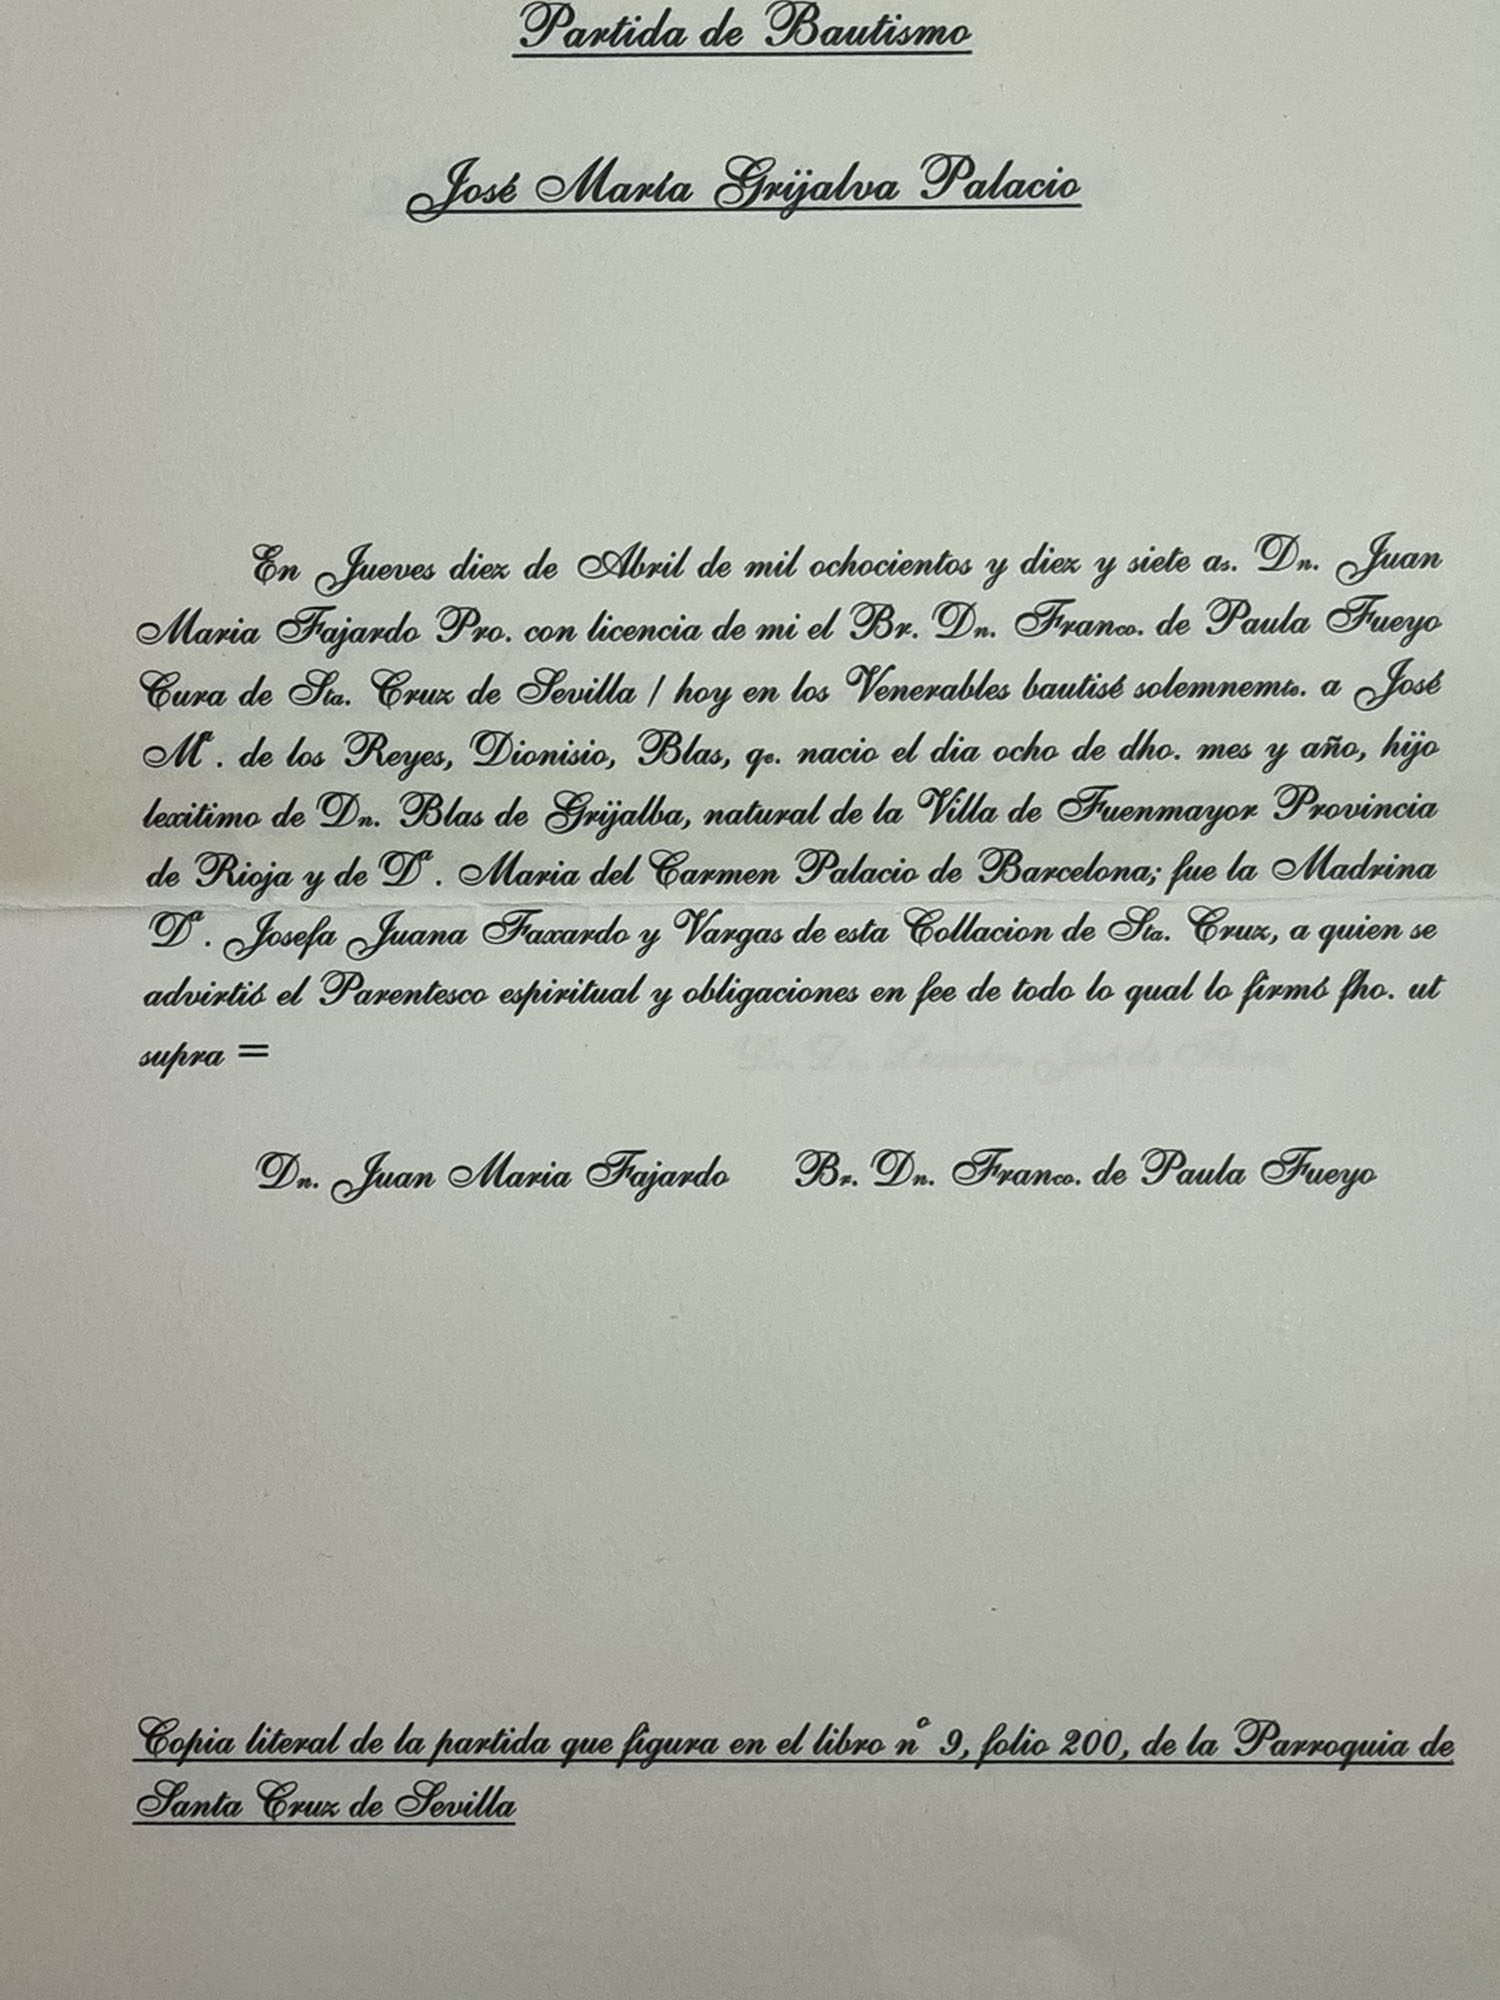 Partida de Bautismo
José María Grijalva Palacio
En Jueves diez de Abril de mil ochocientos y diez y siete as. Dn. Juan
Maria Fajardo Pro. con licencia de mi el Br. Dn. Franco. de Paula Fueyo
Cura de Sta. Cruz de Sevilla / hoy en los Venerables bautisé solemnemte. a José
Mª. de los Reyes, Dionisio, Blas, qe. nacio el dia ocho de dho. mes y año, hijo
lexitimo de Dn. Blas de Grijalba, natural de la Villa de Fuenmayor Provincia
de Rioja y de Dª. Maria del Carmen Palacio de Barcelona; fue la Madrina
Dª. Josefa Juana Faxardo y Vargas de esta Collacion de Sta. Cruz, a quien se
advirtió el Parentesco espiritual y obligaciones en fee de todo lo qual lo firmó fho. ut
supra =
Dn. Juan Maria Fajardo Br. Dn. Franco. de Paula Fueyo
Copia literal de la partida que figura en el libro nº 9, folio 200, de la Parroquia de
Santa Cruz de Sevilla